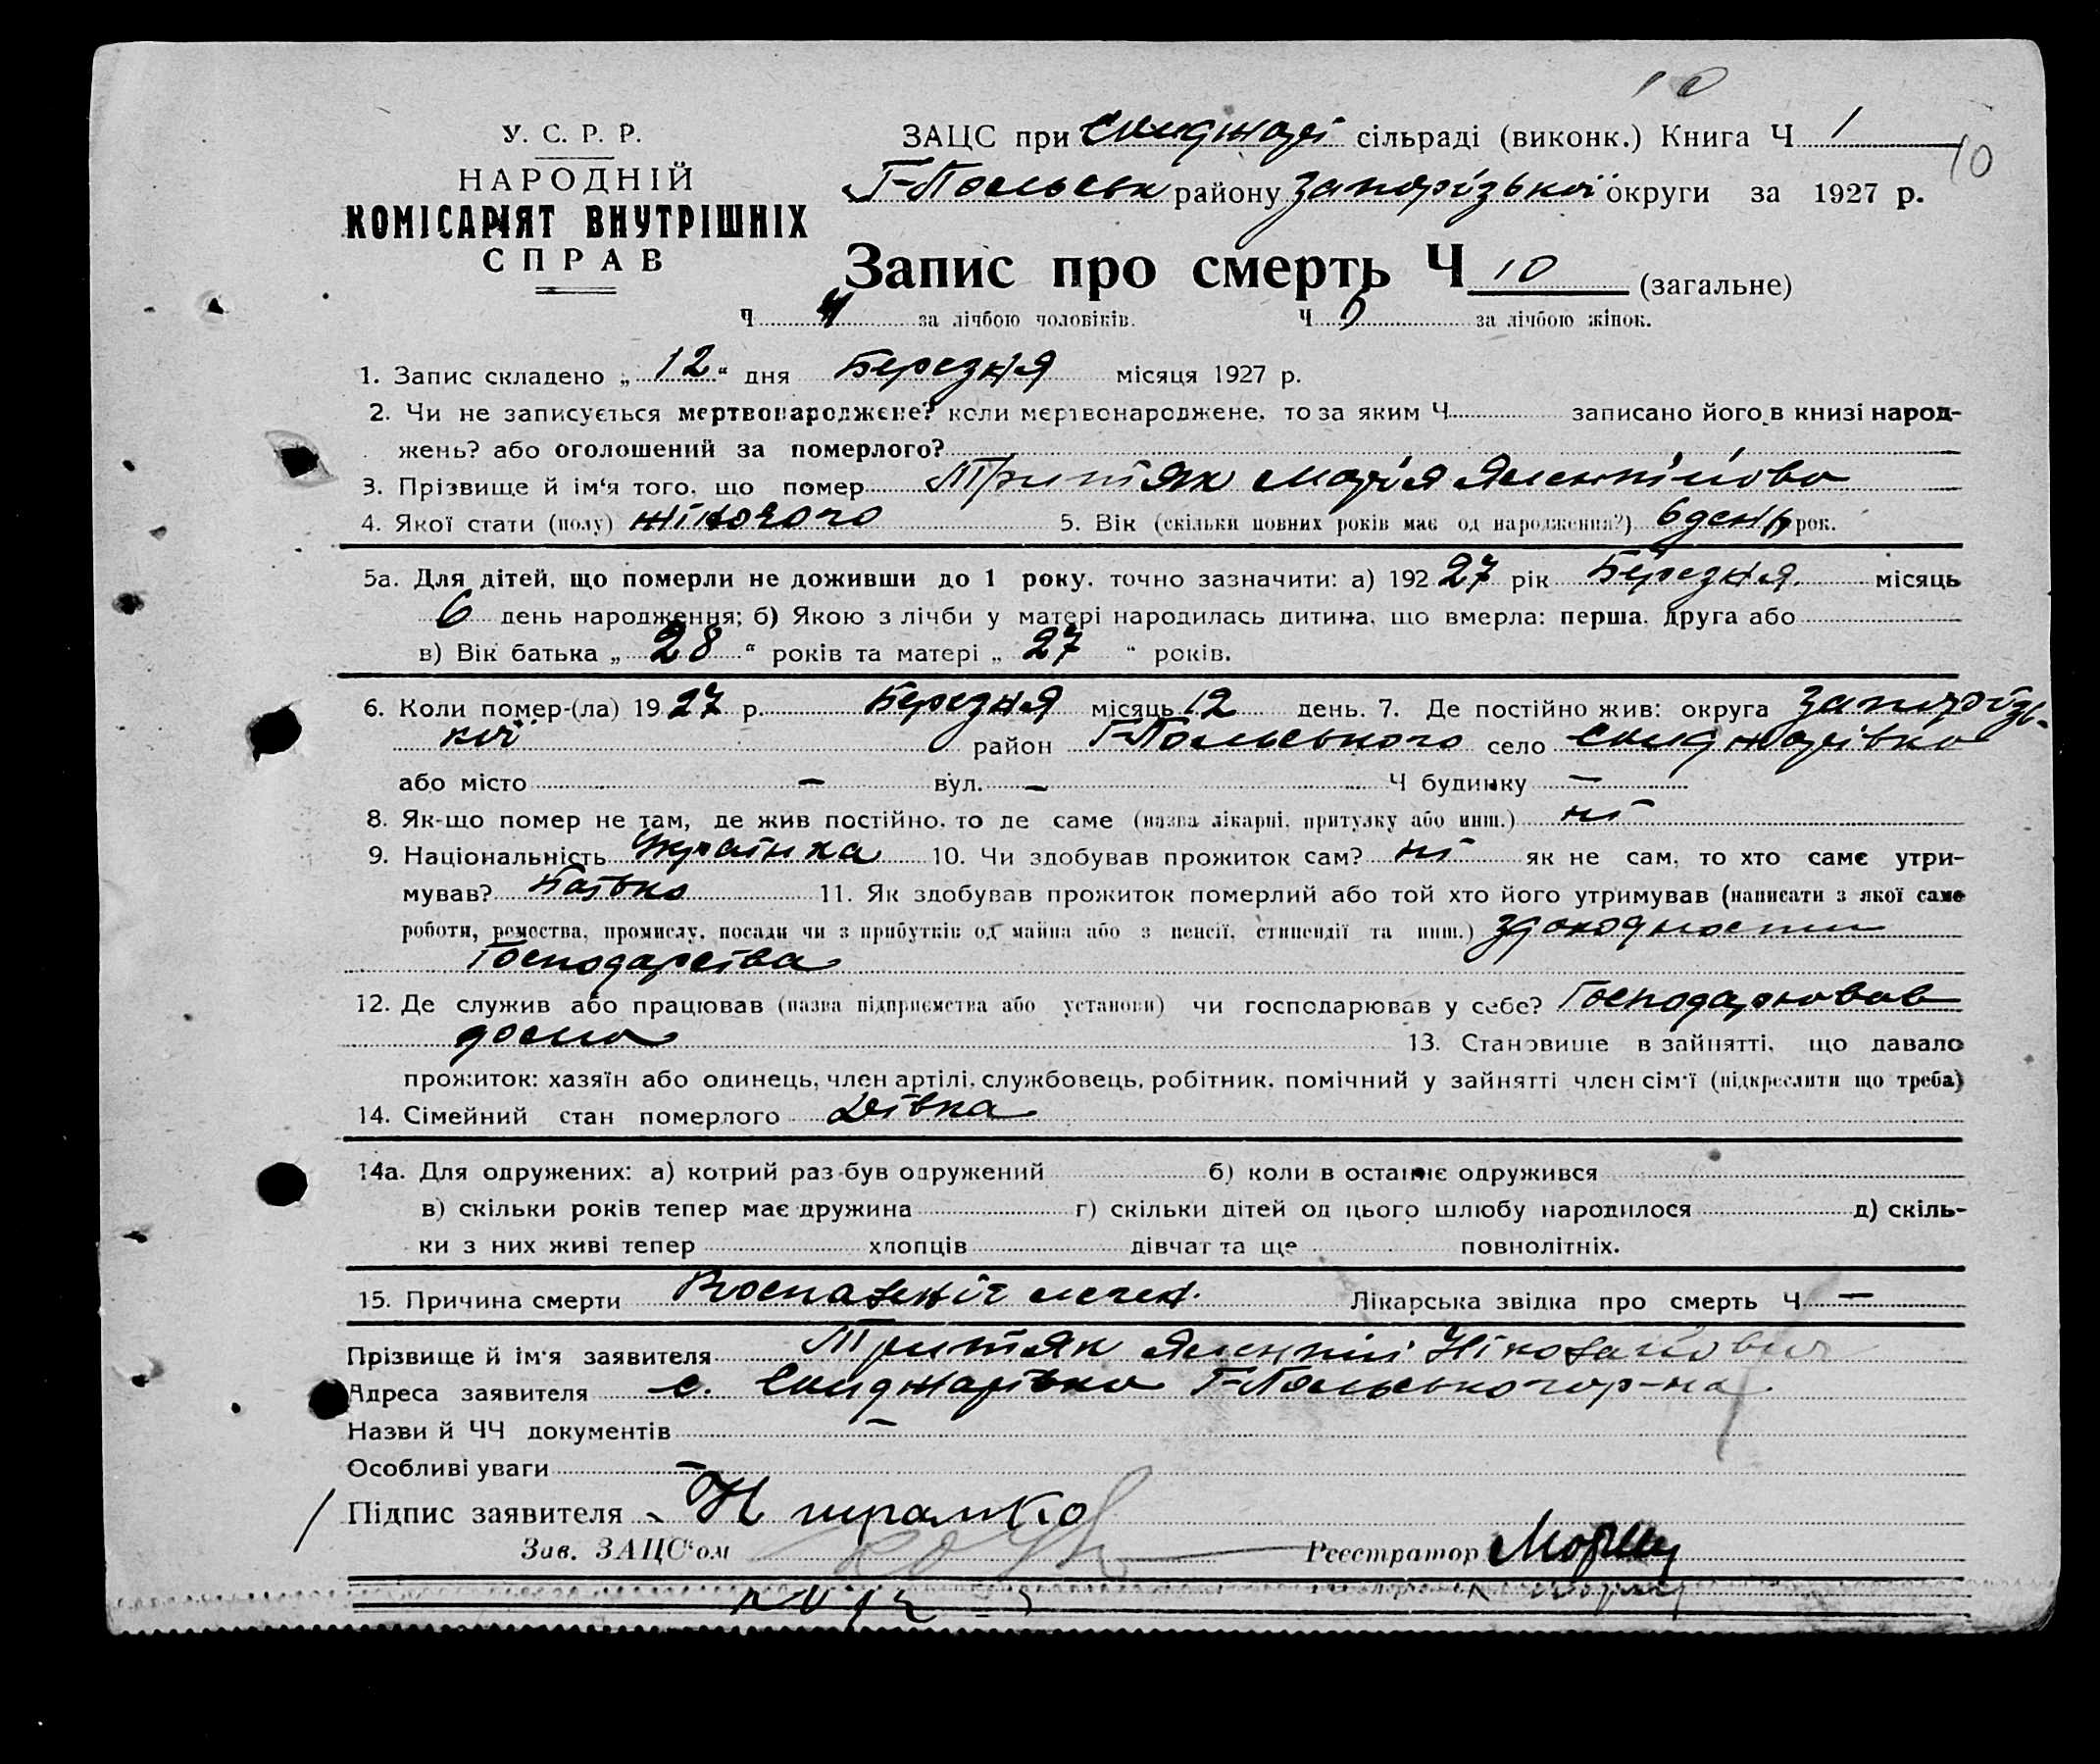 10
У. С. Р. Р.
НАРОДНІЙ
КОМІСАРІЯТ ВНУТРІШНІХ
СПРАВ
ЗАЦС при сільраді (виконк.) Книга Ч 1
10
Г-Польськ району Запорізької округи за 1927 р.
Запис про смерть Ч 10 (загальне)
Ч 4 за лічбою чоловіків. Ч 6 за лічбою жінок.
1. Запис складено „12“ дня Березня місяця 1927 р.
2. Чи не записується мертвонароджене? коли мертвонароджене, то за яким Ч записано його в книзі народ-
жень? або оголошений за померлого?
3. Прізвище й ім'я того, що помер Притяк Марія
4. Якої стати (полу) жіночого 5. Вік (скільки повних років має од народження?) 6 день рок.
5а. Для дітей, що померли не доживши до 1 року, точно зазначити: а) 192 27 рік Березня місяць
6 день народження; б) Якою з лічби у матері народилась дитина, що вмерла: перша, друга або
в) Вік батька „28“ років та матері „27“ років.
6. Коли помер-(ла) 1927 р. Березня місяць 12 день. 7. Де постійно жив: округа Запорізь-
кої район Г-Польського село
або місто – вул. – Ч будинку –
8. Як-що помер не там, де жив постійно, то де саме (назва лікарні, притулку або инш.) ні
9. Національність Українка 10. Чи здобував прожиток сам? ні як не сам, то хто саме утри-
мував? Батько 11. Як здобував прожиток померлий або той хто його утримував (написати з якої саме
роботи, ремества, промислу, посади чи з прибутків од майна або з пенсії, стипендії та инш.)
Господарства
12. Де служив або працював (назва підприємства або установи) чи господарював у себе? Господарював
дома 13. Становище в зайнятті, що давало
прожиток: хазяїн або одинець, член артілі, службовець, робітник, помічний у зайнятті член сім'ї (підкреслити що треба)
14. Сімейний стан померлого Дівка
14а. Для одружених: а) котрий раз був одружений б) коли в останнє одружився
в) скільки років тепер має дружина г) скільки дітей од цього шлюбу народилося д) скіль-
ки з них живі тепер хлопців дівчат та ще повнолітніх.
15. Причина смерти Лікарська звідка про смерть Ч –
Прізвище й ім'я заявителя Притяк
Адреса заявителя с. Г-Польського р-на
Назви й ЧЧ документів –
Особливі уваги –
Підпис заявителя
Зав. ЗАЦС'ом Реєстратор